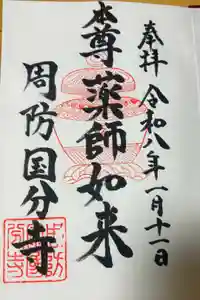 奉拝 令和八年一月十一日
本尊薬師如来
周防国分寺
周防
国分寺